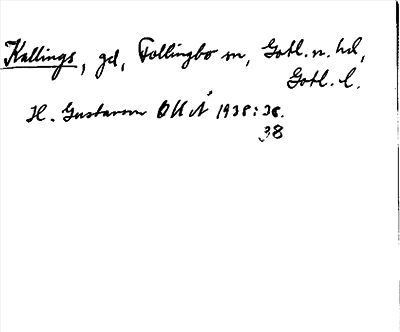 Kallings, gd, Follingbo sn, Gotl. n. hd,
Gotl. l.
H. Gustavson OUÅ 1938: 36.
38